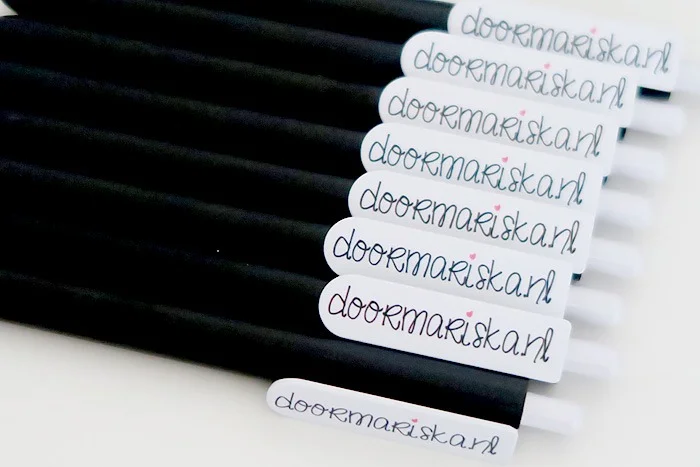 doormariska.nl
doormariska.nl
doormariska.nl
doormariska.nl
doormariska.nl
doormariska.nl
doormariska.nl
doormariska.nl